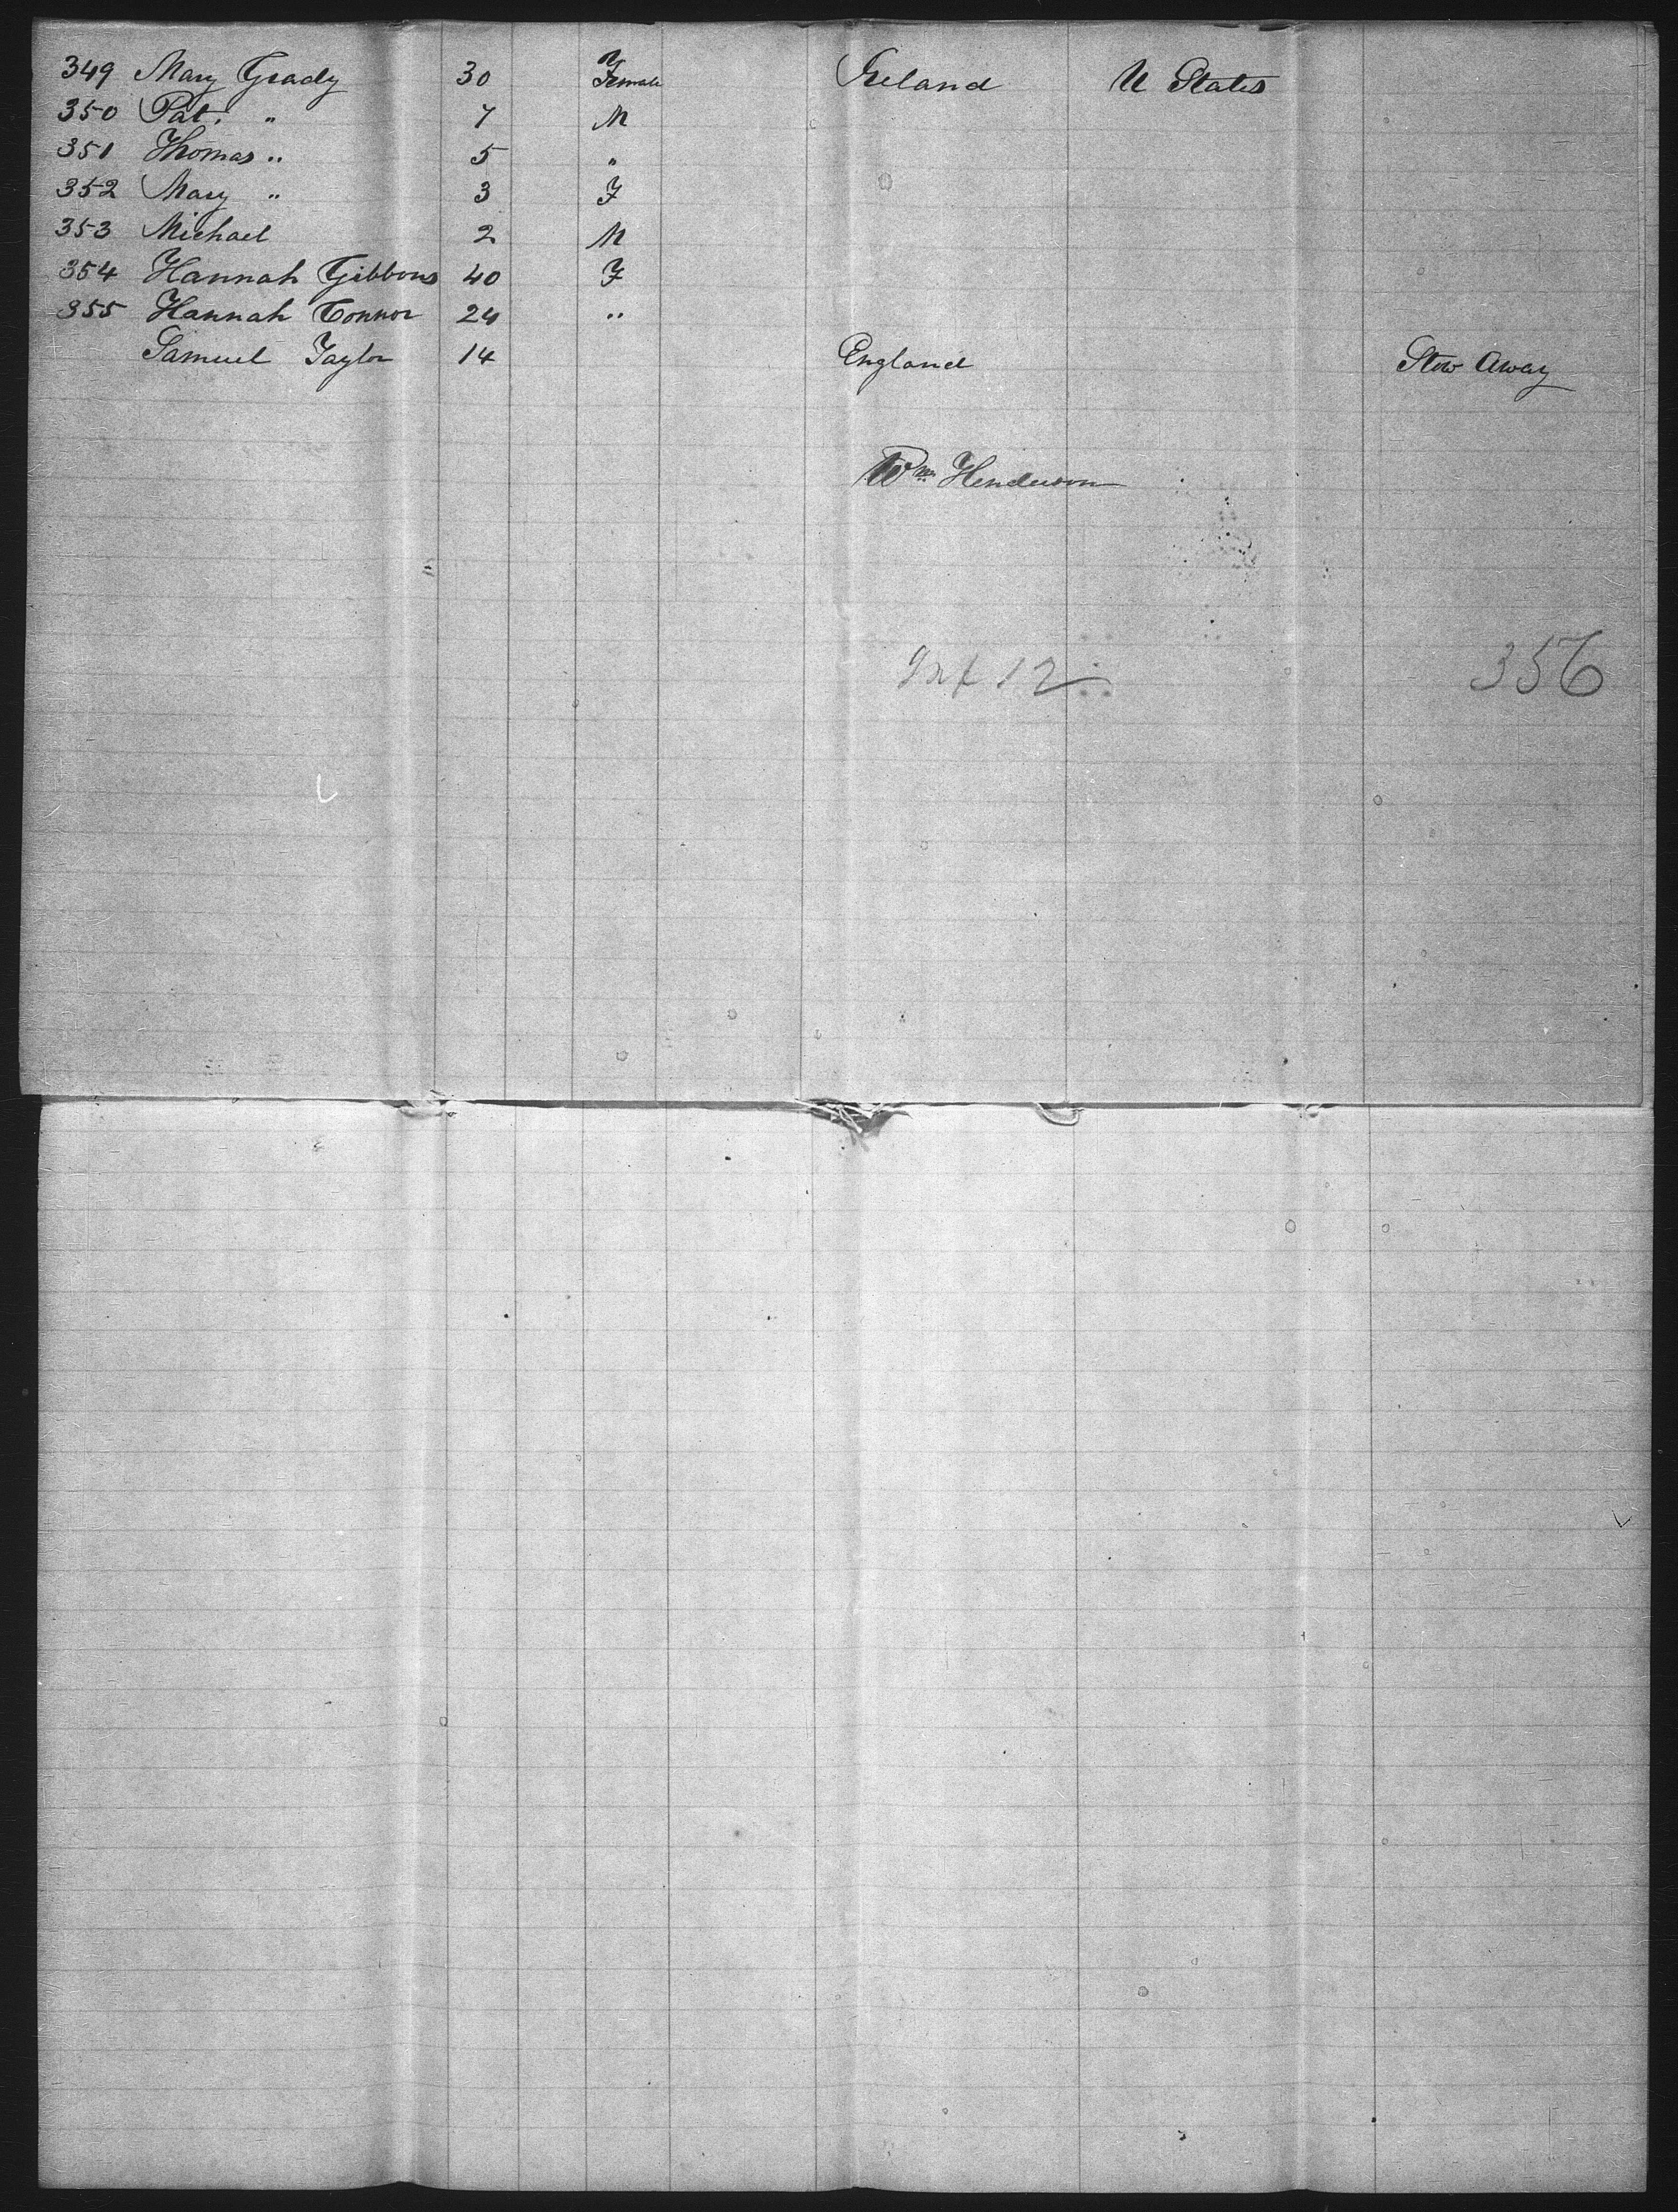 349 Mary Grady 30 Female Ireland U States
350 Pat. " 7 M
351 Thomas " 5 "
352 Mary " 3 F
353 Michael 2 M
354 Hannah Gibbons 40 F
355 Hannah Connor 24 "
Samuel Taylor 14 England Stow Away
Wm Henderson
Inf 12 356